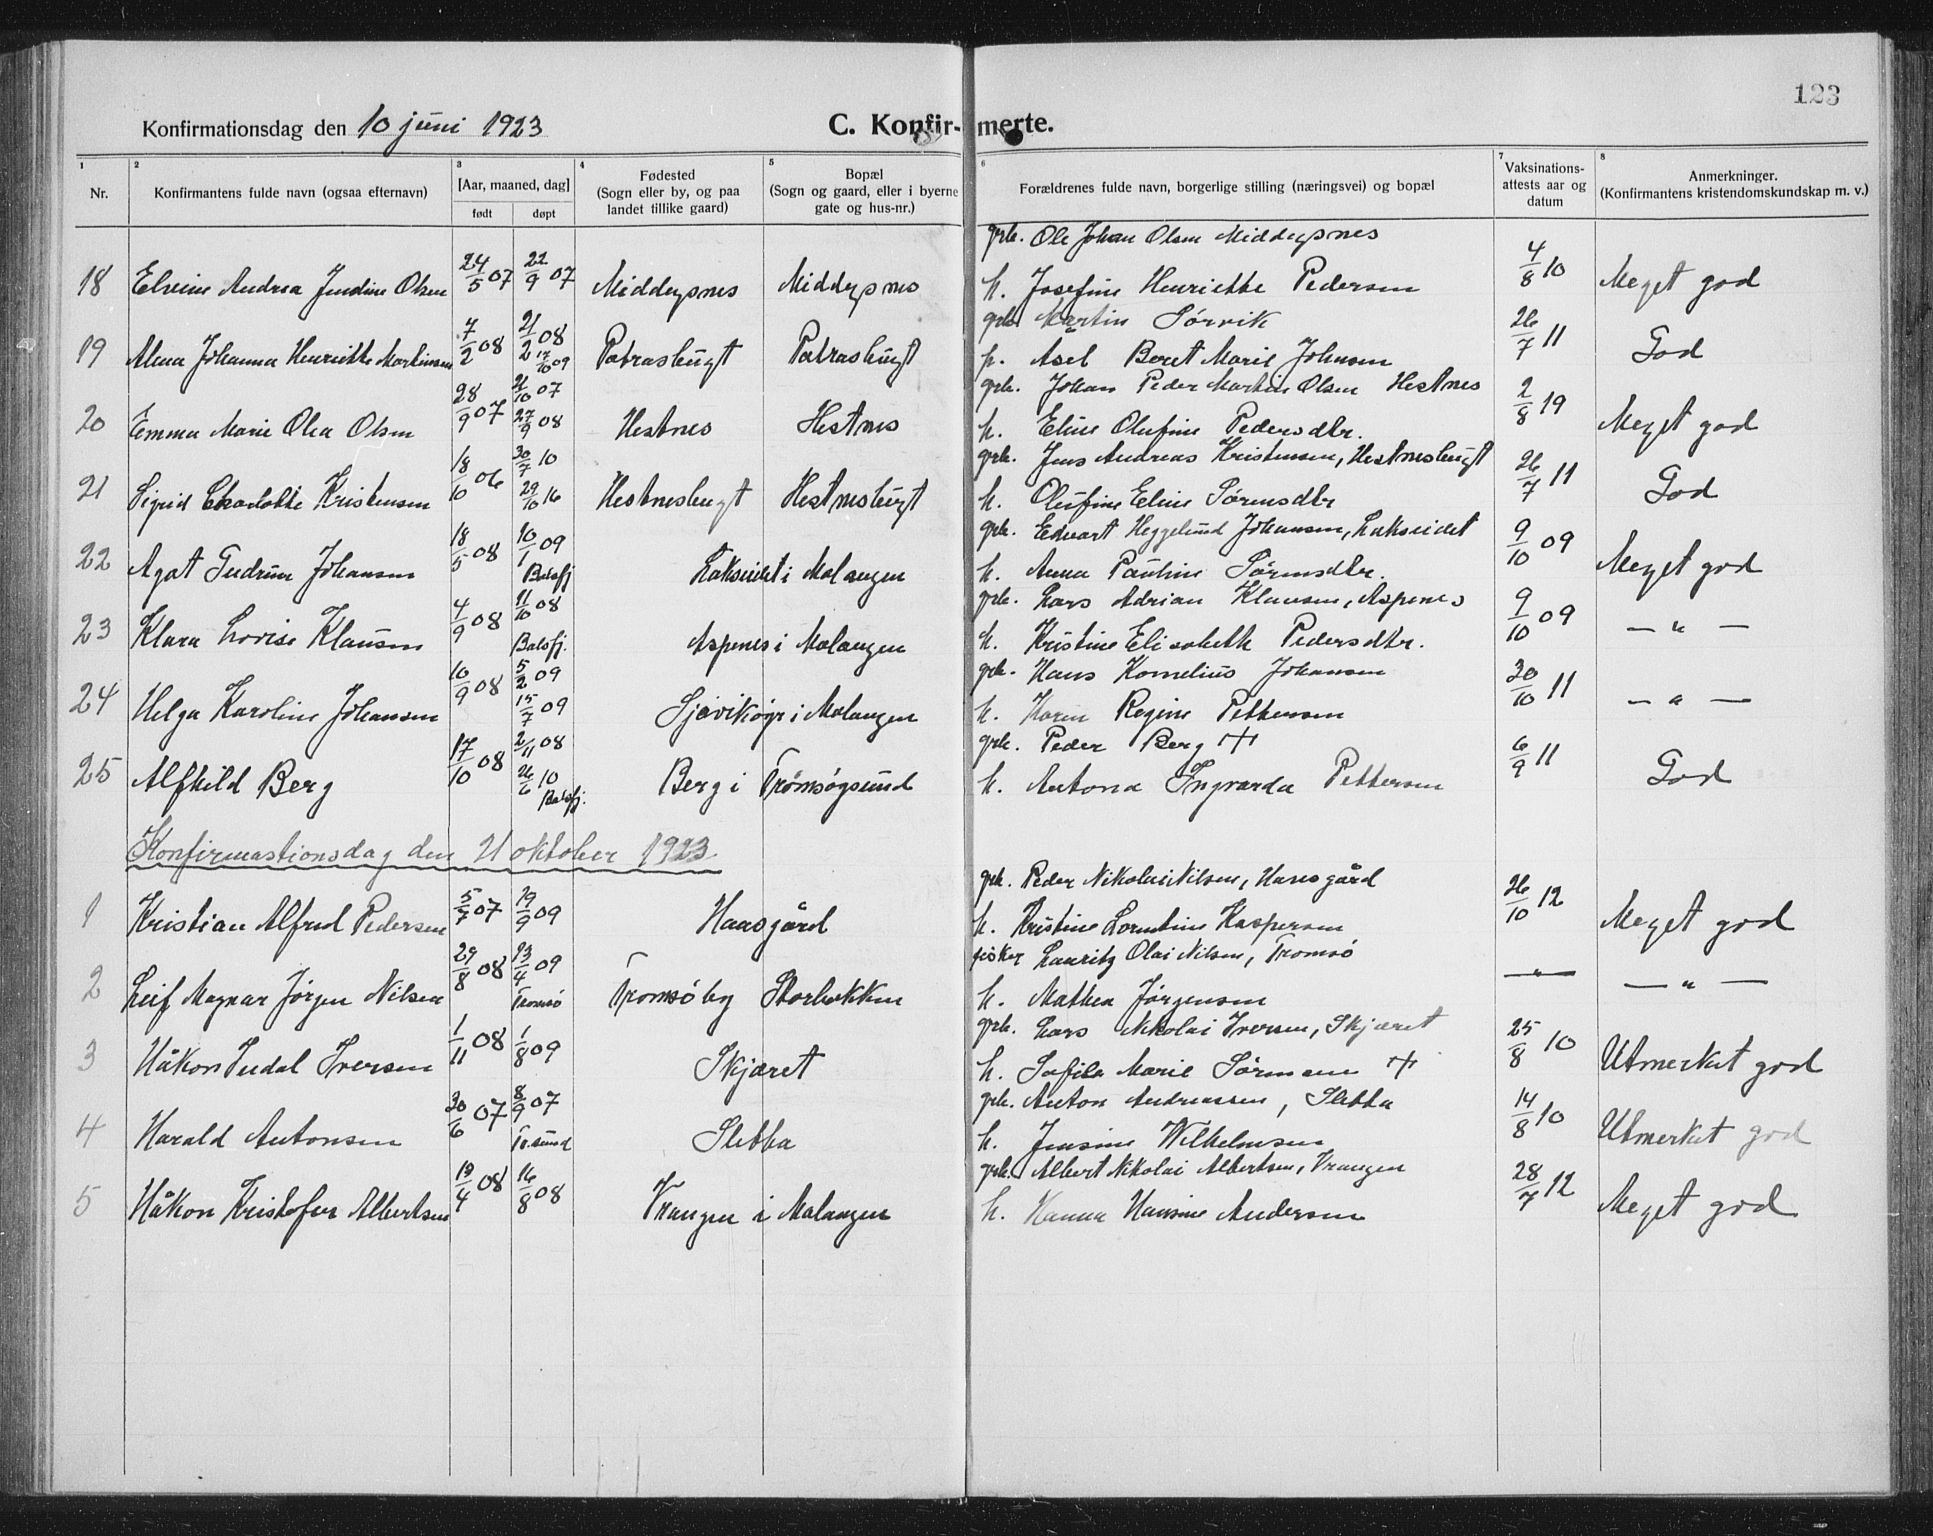 123
Konfirmationsdag den 10 juni 1923 C. Konfir-merte.
1 2 3 4 5 6 7 8
Nr. Konfirmantens fulde navn (ogsaa efternavn) [Aar, maaned, dag] født døpt Fødested (Sogn eller by, og paa landet tillike gaard) Bopæl (Sogn og gaard, eller i byerne gate og hus-nr.) Forældrenes fulde navn, borgerlige stilling (næringsvei) og bopæl Vaksinations-attests aar og datum Anmerkninger. (Konfirmantens kristendomskundskap m. v.)
grb. Ole Johan Olsen Middagsnes
18 Elvine Andrea Jendine Olsen 24/5 07 22/9 07 Middagsnes Middagsnes h. Josefine Henriette Pedersen 4/8 10 Meget god
grb. Martin Sørvik
19 Alma Johanna Henriette Martinsen 7/2 08 21/2 08 17/10 09 Patrasbugt Patrasbugt p. Asel Beret Marie Johnsen 26/7 11 God
grb. Johan Peder Martin Olsen Hestnes
20 Emma Marie Olea Olsen 28/9 07 21/10 07 27/9 08 Hestnes Hestnes h. Eline Olufine Pedersdtr. 2/8 19 Meget god
grb. Jens Andreas Kristensen, Hestnesbugt
21 Sigrid Charlotte Kristensen 18/10 06 30/7 10 29/10 16 Hestnesbugt Hestnesbugt h. Olufine Eline Sørensdtr 26/7 11 God
grb. Edvart Heggelund Johansen, Lakseidet
22 Agot Gudrun Johansen 18/5 08 10/1 09 Balsfj Lakseidet i Malangen h. Anna Pauline Sørensdtr. 9/10 09 Meget god
grb. Lars Adrian Klausen, Aspenes
23 Klara Lovise Klausen 4/9 08 11/10 08 Balsfj. Aspenes i Malangen h. Kristine Elisabeth Pedersdtr. 9/10 09 — " —
grb. Hans Kornelius Johansen
24 Helga Karoline Johansen 10/9 08 5/2 09 15/7 09 i Malangen h. Karen Regine Pettersen 30/10 11 — " —
grb. Peder Berg +
25 Alfhild Berg 17/10 08 2/11 08 26/6 10 Balsfj. Berg i Tromsøysund h. Antona Ingvarda Pettersen 6/9 11 God
Konfirmastionsdag den 21 oktober 1923
grb. Peder Nikolai Nilsen, Hansgård
1 Kristian Alfred Pedersen 5/7 07 19/9 09 Haasgård h. Kristine Lorentine Kaspersen 26/10 12 Meget god
fisker Lauritz Olai Nilsen, Tromsø
2 Leif Magnar Jørgen Nilsen 29/8 08 13/4 09 Tromsø Tromsø by Storbakken h. Mathea Jørgensen — " — — " —
grb. Lars Nikolai Iversen, Skjæret
3 Håkon Iversen 1/11 08 1/8 09 Skjæret h. Sofie Marie Sørensen + 25/8 10 Utmerket god
grb. Anton Andreassen, Sletta
4 Harald Antonsen 30/6 07 8/9 07 Tr.sund Sletta h. Jensine Wilhelmsen 14/8 10 Utmerket god
grb. Albert Nikolai Albertsen, Vrangen
5 Håkon Kristofer Albertsen 19/4 08 16/8 08 Vrangen i Malangen h. Hanna Hansine Andersen 28/7 12 Meget god